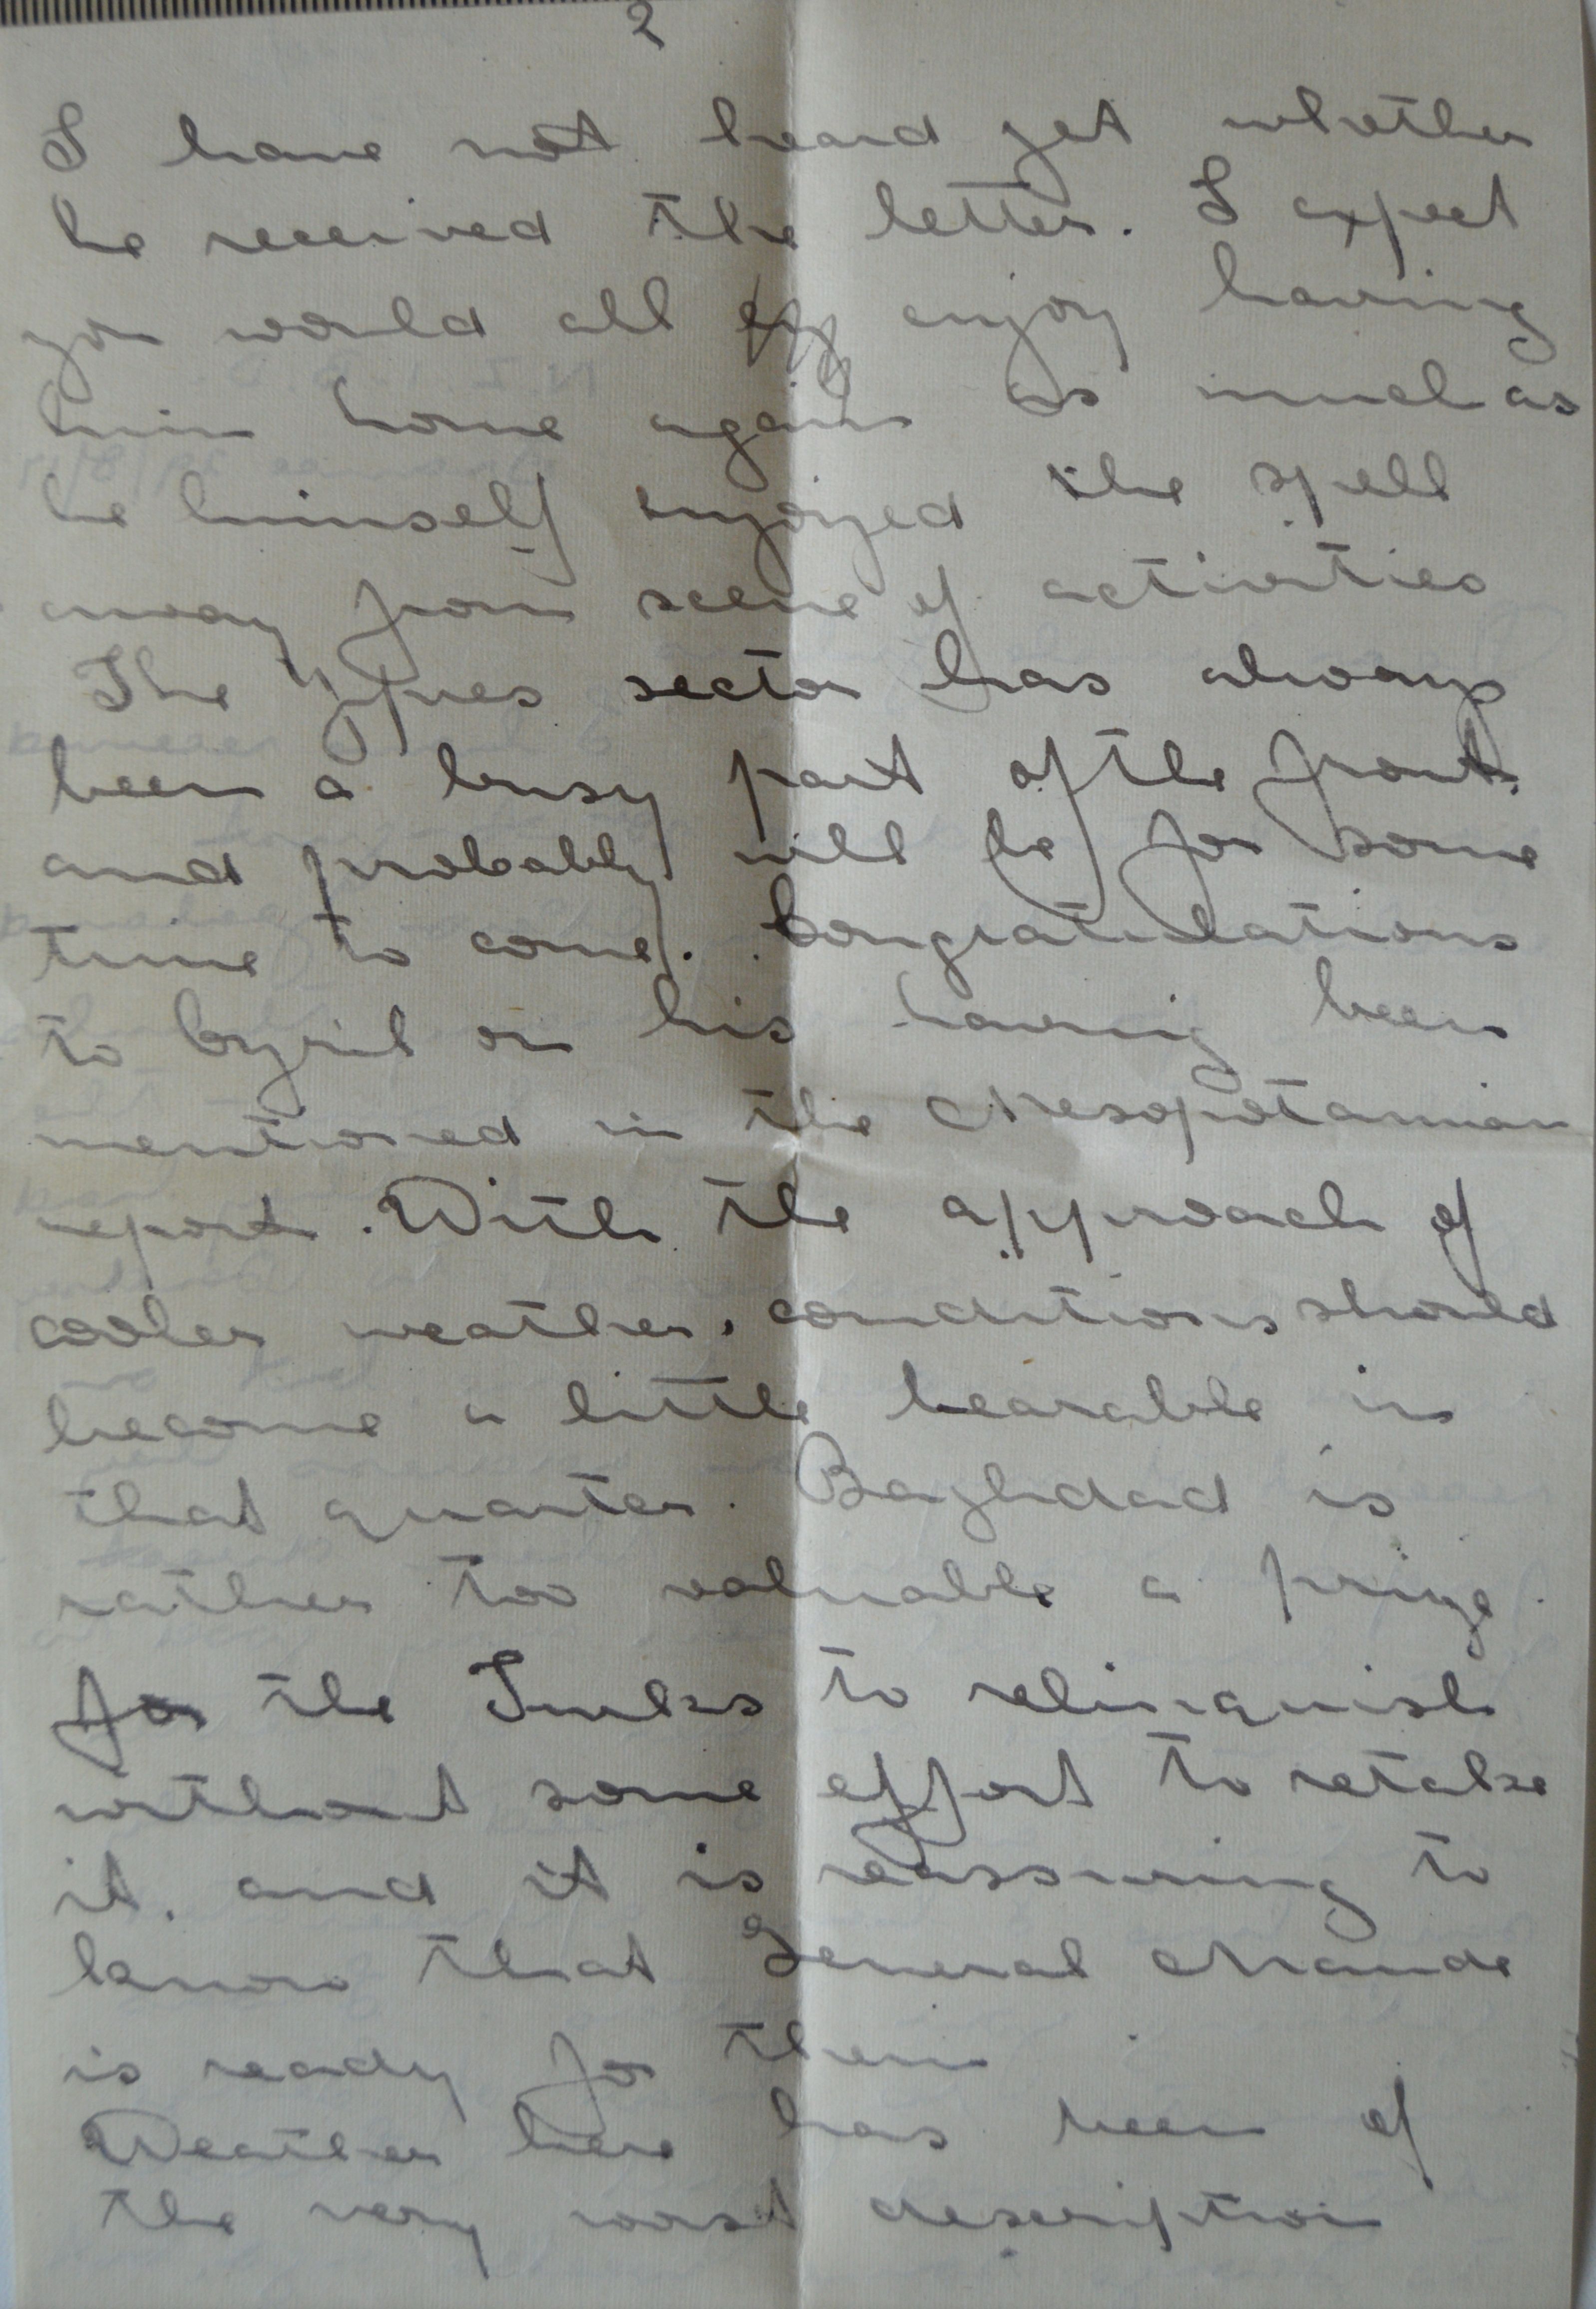 2
I have not heard yet whether
he received the letter. I expect
you would all enjoy having
him home again as much as
he himself enjoyed the spell
away from scene of activities
The Ypres sector has always
been a busy part of the front.
and probably will be for some
time to come. Congratulations
to Cyril on his having been
mentioned in the Mesopotamian
report. With the approach of
cooler weather, conditions should
become a little bearable in
that quarter. Baghdad is
rather too valuable a prize
for the Turks to relinquish
without some effort to retake
it, and it is reassuring to
know that General Maude
is ready for them
Weather here has been of
the very worst description